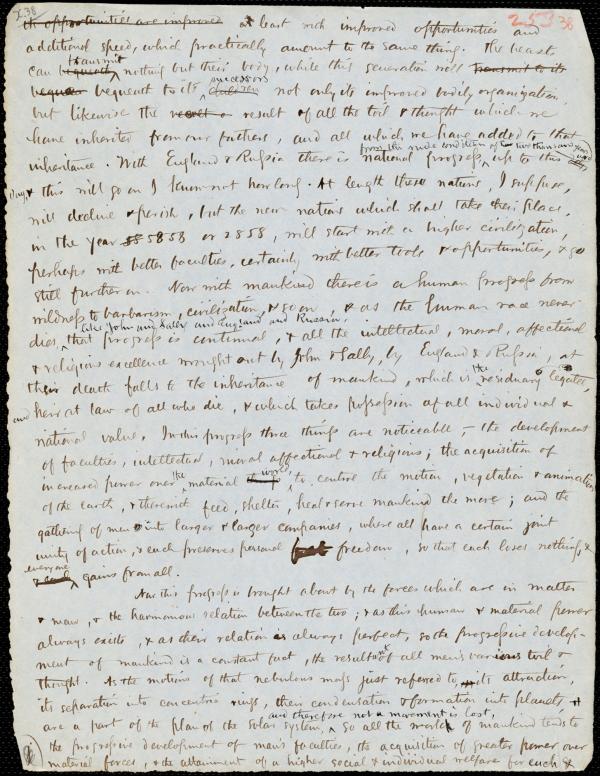 X.38
253 38
th opportunities are improved at least with improved opportunities and
additional speed, which practically amount to the same thing. The beast
can bequeath transmit nothing but their body, while this generation will transmit to its
bequeath to its children successors not only its improved bodily organization,
but likewise the result of all the toil & thought which we
have inherited from our fathers, and all which we have added to that
inheritance. With England & Russia there is national progress from the rude condition of two thousand years ago up to this
day, & this will go on I know not how long. At length these nations, I suppose,
will decline & perish, but the new nations which shall take their place,
in the year 5858 or 2858, will start with a higher civilization,
perhaps with better faculties, certainly with better tools & opportunities, & go
still further on. Now with mankind there is a human progress from
wildness to barbarism, civilization, & so on, & as the human race never
dies, like John and Sally and England and Russia, that progress is continual, & all the intellectual, moral, affectional
& religious excellence wrought out by John & Sally, by England & Russia, at
their death falls to the inheritance of mankind, which is the residuary legatee,
and heir at law of all who die, & which takes possession of all individual &
national value. In this progress three things are noticeable, – the development
of faculties, intellectual, moral affectional & religious; the acquisition of
increased power over the material world, to control the motion, vegetation & animation
of the earth, & therewith feed, shelter, heal & serve mankind the more; and the
gathering of men into larger & larger companies, where all have a certain joint
unity of action, & each preserves personal freedom, so that each loses nothing, &
& each everyone gains from all.
Now this progress is brought about by the forces which are in matter
& man, & the harmonious relation between the two; & as this human & material power
always exists, & as their relation is always perfect, so the progressive develop-
ment of mankind is a constant fact, the resultant of all men's various toil &
thought. As the motions of that nebulous mass just referred to, its attraction,
its separation into concentric rings, their condensation & formation into planets,
are a part of the plan of the Solar System, and therefore not a movement is lost, so all the work of mankind tends to
the progressive development of man's faculties, the acquisition of greater power over
material forces, & the attainment of a higher social & individual welfare for each &